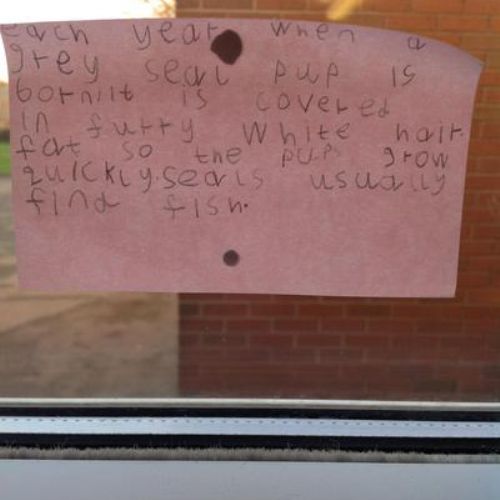 each year when a
grey seal pup is
bornit is covered
in furry white hair.
fat so the pups grow
quickly.seals usually
find fish.